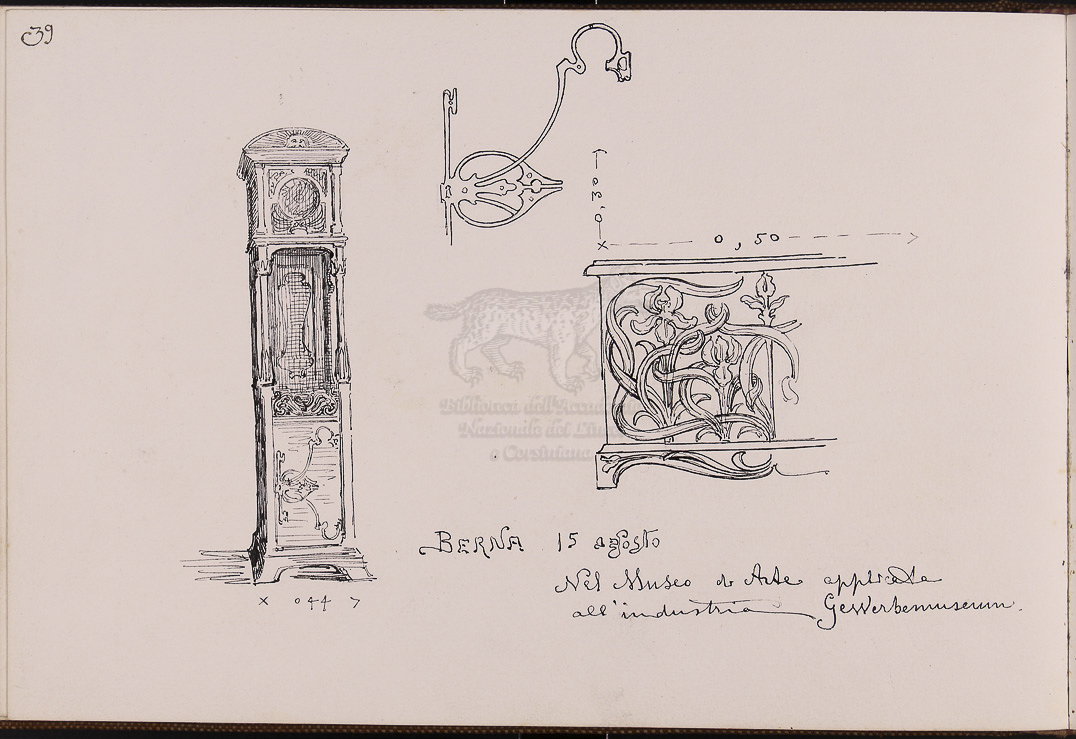 39
0,30
0,50
× 044 >
BERNA 15 agosto
Nel Museo di Arte applicata
all'industria Gewerbemuseum.
Biblioteca dell'Accad
Nazionale dei Linc
e Corsiniana